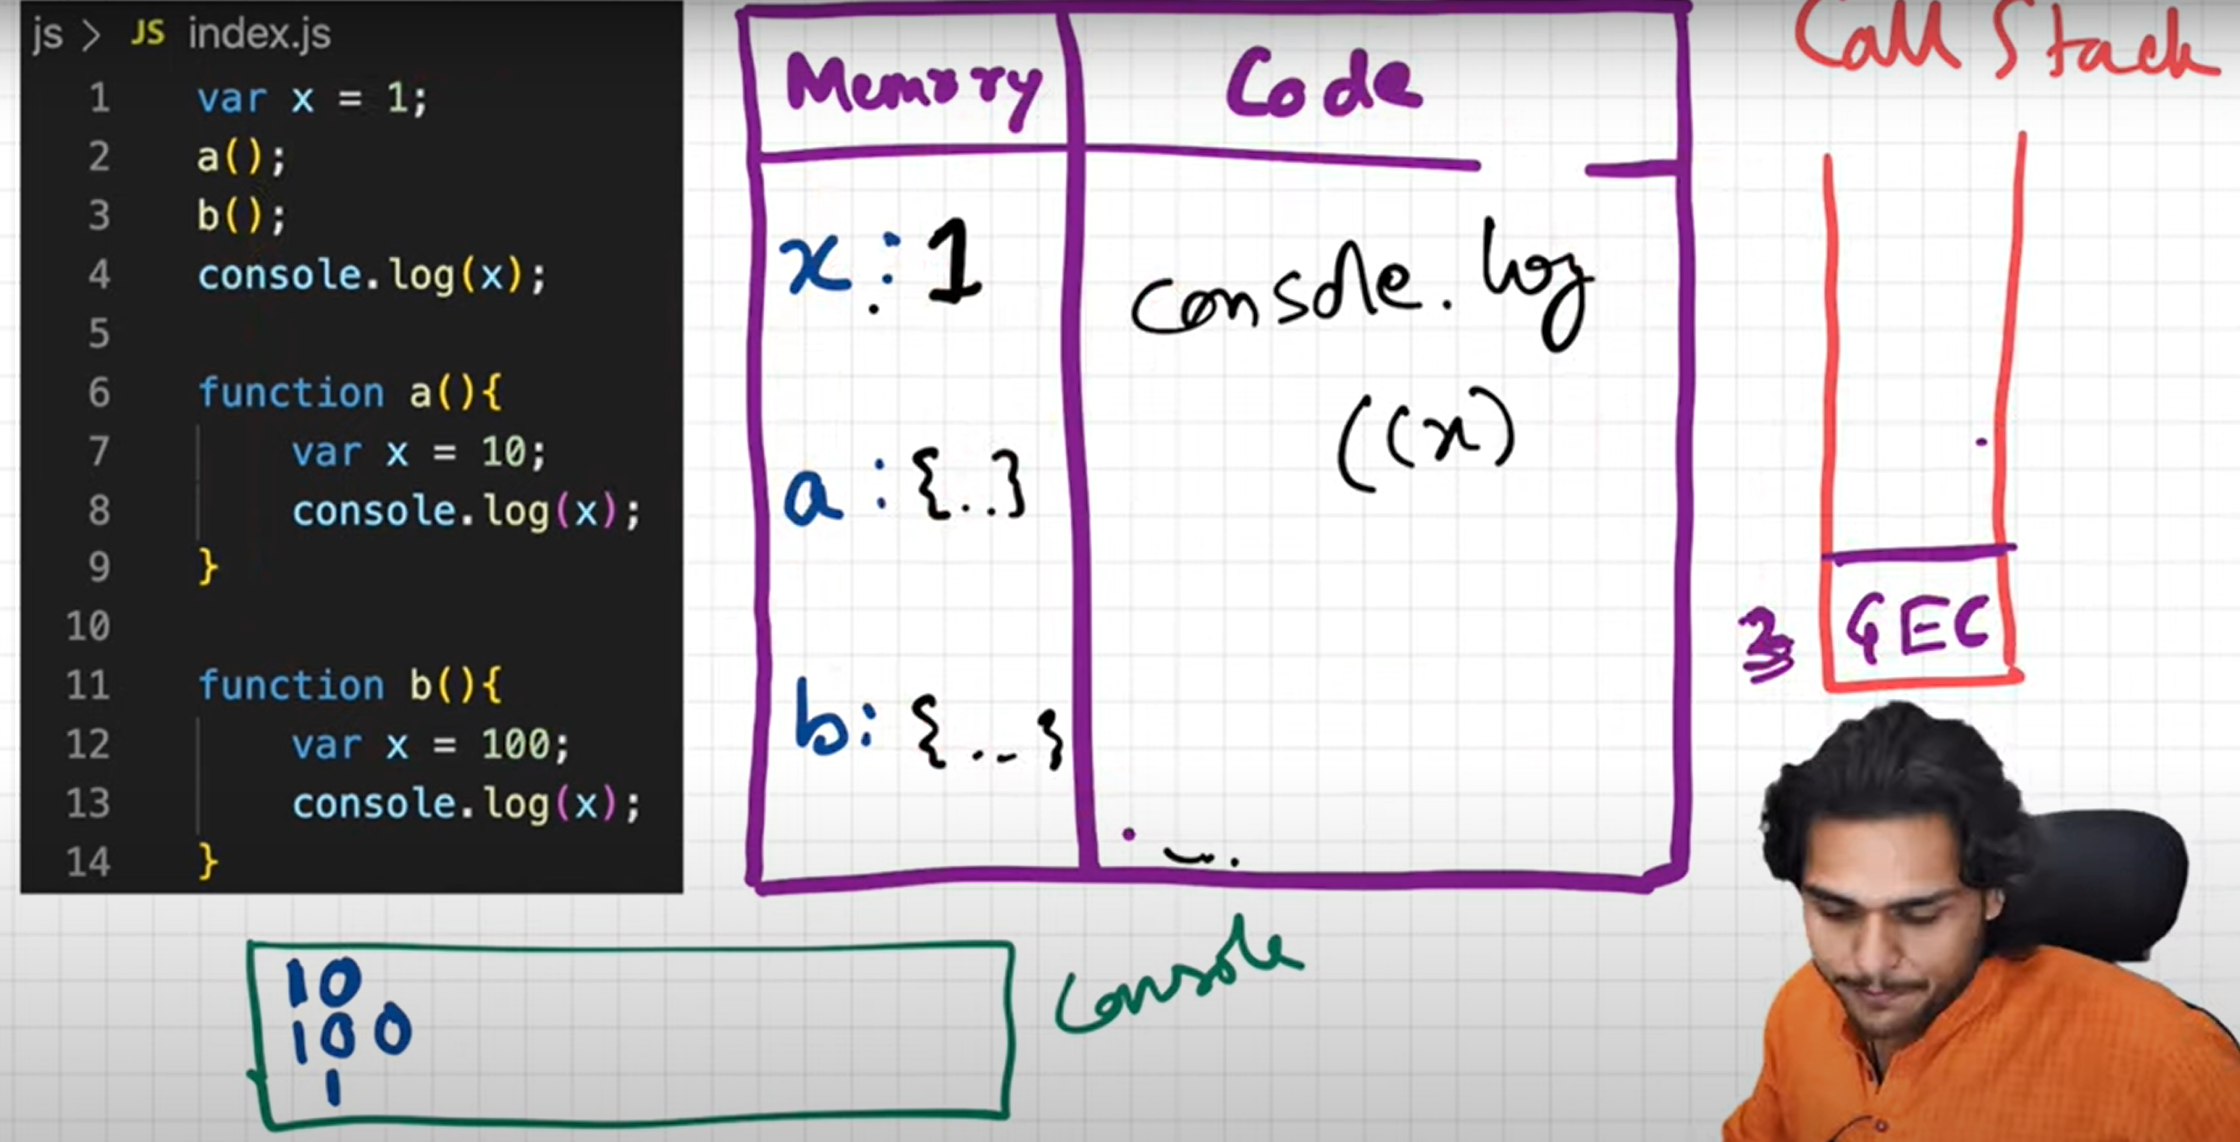 js > JS index.js
1 var x = 1;
2 a();
3 b();
4 console.log(x);
5
6 function a(){
7 var x = 10;
8 console.log(x);
9 }
10
11 function b(){
12 var x = 100;
13 console.log(x);
14 }
Memory
Code
x : 1
a : {..}
b : {...}
console.log
((x)
Call Stack
GEC
10
100
1
Console